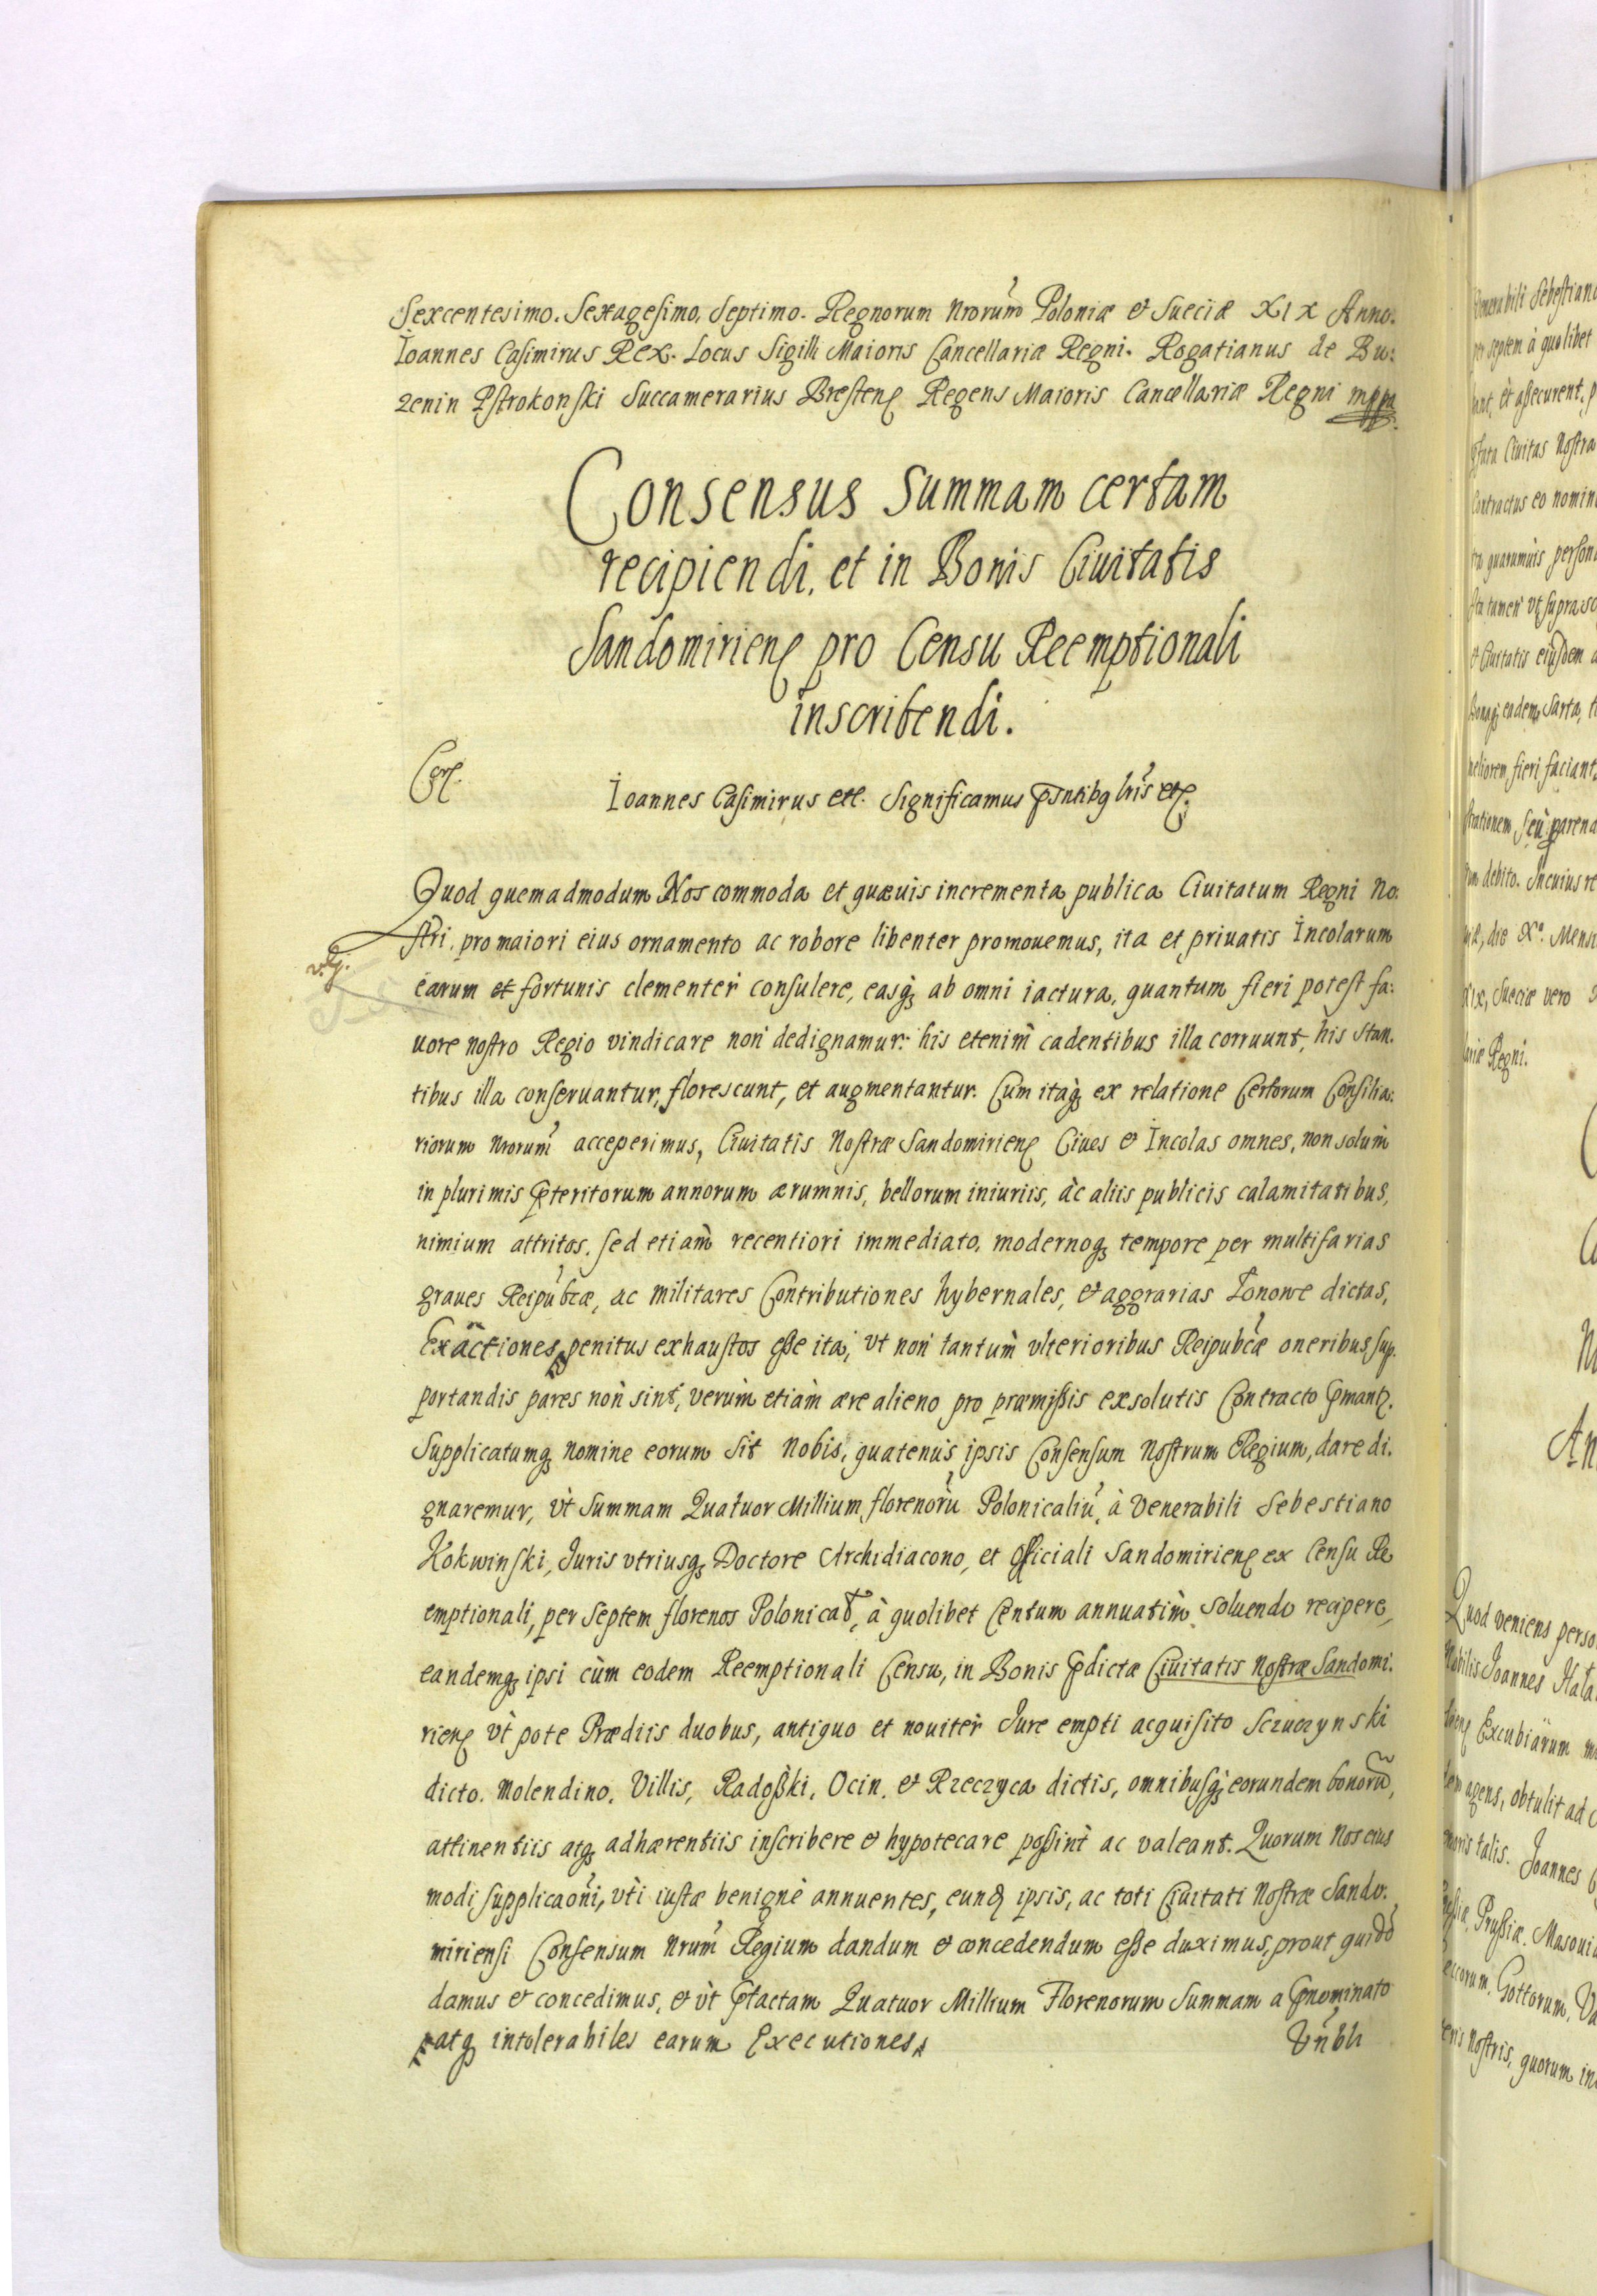 Sexcentesimo. Sexagesimo, Septimo. Regnorum Nrorum Poloniæ et Sueciæ XIX Anno.
Ioannes Casimirus Rex. Locus Sigilli Maioris Cancellariæ Regni. Rogatianus de Bu:
zenin Pstrokonski Succamerarius Bresteng Regens Maioris Cancellariæ Regni mppa
Consensus Summam certam
recipiendi, et in Bonis Civitatis
Sandomirieng pro Censu Reemptionali
inscribendi.
Ioannes Casimirus etc. Significamus psntibg lris etc.
Quod quemadmodum Nos commoda et quævis incrementa publica Civitatum Regni No:
stri, pro maiori eius ornamento ac robore libenter promovemus, ita et privatis Incolarum
earum et fortunis clementer consulere, easq; ab omni iactura, quantum fieri potest fa:
uore nostro Regio vindicare non dedignamur: his etenim cadentibus illa corruunt, his stan.
tibus illa conservantur, florescunt, et augmentantur. Cum itaq; ex relatione Certorum Consilia:
riorum Nrorum acceperimus, Civitatis Nostræ Sandomirieng Cives et Incolas omnes, non solum
in plurimis pteritorum annorum ærumnis, bellorum iniuriis, ac aliis publicis calamitatibus,
nimium attritos, sed etiam recentiori immediato, modernoq; tempore per multifarias
graves Reipubcæ, ac militares Contributiones hybernales, et aggrarias Łonowe dictas,
Exactiones penitus exhaustos esse ita, vt non tantum vlterioribus Reipubcæ oneribus sup.
portandis pares non sint, verum etiam ære alieno pro præmissis exsolutis Contracto pmant.
Supplicatumq; nomine eorum sit Nobis, quatenus ipsis Consensum Nostrum Regium, dare di.
gnaremur, vt Summam Quatuor Millium florenoru Polonicaliu, à Venerabili Sebestiano
Kokwinski, Juris vtriusq; Doctore Archidiacono, et Officiali Sandomirieng ex Censu Re
emptionali, per Septem florenos Polonical, à quolibet Centum annuatim solvendo recipere,
eandemq; ipsi cum eodem Reemptionali Censu, in Bonis pdictæ Civitatis Nostræ Sandomi.
rieng vt pote Prædiis duobus, antiquo et noviter Jure empti acquisito Sczuczynski
dicto. Molendino, Villis, Radoßki, Ocin, et Rzeczyca dictis, omnibusq; eorundem bonoru,
attinentiis atq; adhærentiis inscribere et hypotecare possint ac valeant. Quorum Nos eius
modi supplicaoni, vti iustæ benignè annuentes, eund ipsis, ac toti Civitati Nostræ Sando:
miriensi Consensum Nrum Regium dandum et concedendum esse duximus, prout quidd
damus et concedimus, et vt ptactam Quatuor Millium Florenorum Summam a pnominato
atq; intolerabiles earum Executiones Vnbli